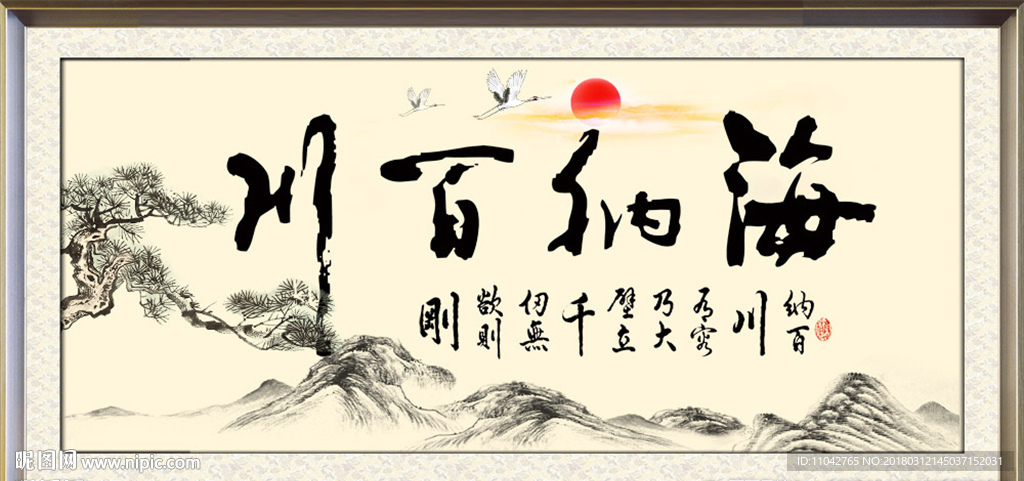 海納百川
納百
川
有容
乃大
壁立
千
仞無
欲則
剛
昵图网 www.nipic.com
ID:11042765 NO:20180312145037152031